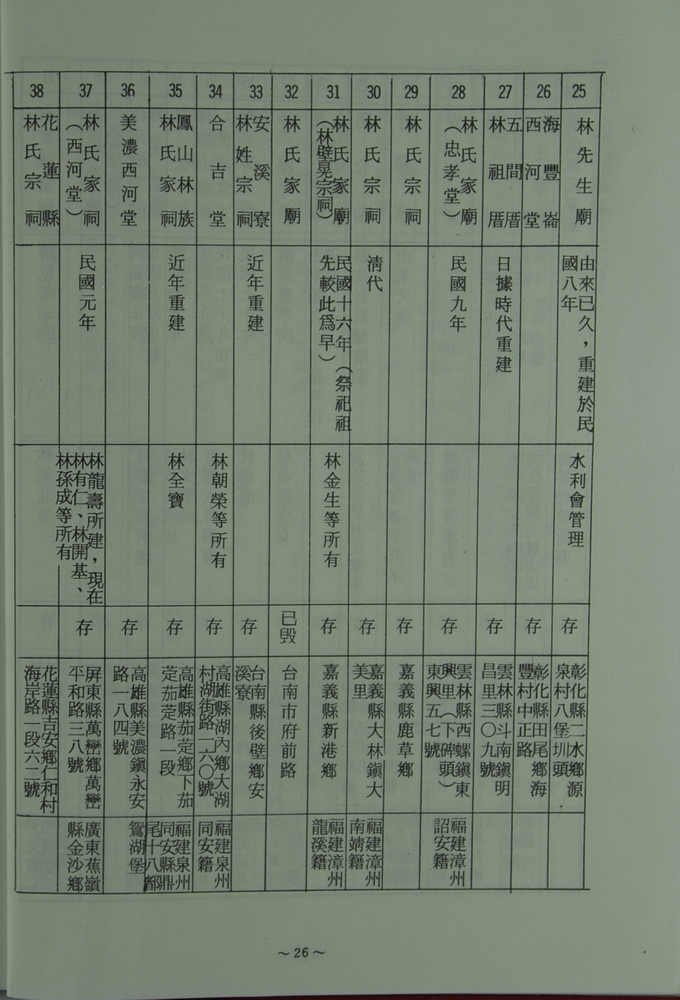 25
林先生廟
由來已久，重建於民
國八年
水利會管理
存
彰化縣二水鄉源
泉村八堡圳頭
26
海豐崙
西河堂
存
彰化縣田尾鄉海
豐村中正路
27
五間厝
林祖厝
日據時代重建
存
雲林縣斗南鎮明
昌里三〇九號
28
林氏家廟
（忠孝堂）
民國九年
存
雲林縣西螺鎮東
興里（下碑頭）
東興五七號
福建漳州
詔安籍
29
林氏宗祠
存
嘉義縣鹿草鄉
30
林氏宗祠
清代
存
嘉義縣大林鎮大
美里
福建漳州
南靖籍
31
林氏家廟
（林壁晃宗祠）
民國十六年（祭祀祖
先較此為早）
林金生等所有
存
嘉義縣新港鄉
福建漳州
龍溪籍
32
林氏家廟
已毀
台南市府前路
33
安溪寮
林姓宗祠
近年重建
存
台南縣後壁鄉安
溪寮
34
合吉堂
林朝榮等所有
存
高雄縣湖內鄉大湖
村湖街路一六〇號
福建泉州
同安籍
35
鳳山林族
林氏家祠
近年重建
林全寶
存
高雄縣茄萣鄉下茄
萣茄萣路一段
福建泉州
同安縣鼎
尾十八都
36
美濃西河堂
存
高雄縣美濃鎮永安
路一八四號
鴛湖堡
37
林氏家祠
（西河堂）
民國元年
林龍壽所建，現在
林有仁、林開基、
林孫成等所有
存
屏東縣萬巒鄉萬巒
平和路三八號
廣東蕉嶺
縣金沙鄉
38
花蓮縣
林氏宗祠
花蓮縣吉安鄉仁和村
海岸路一段六二號
～26～